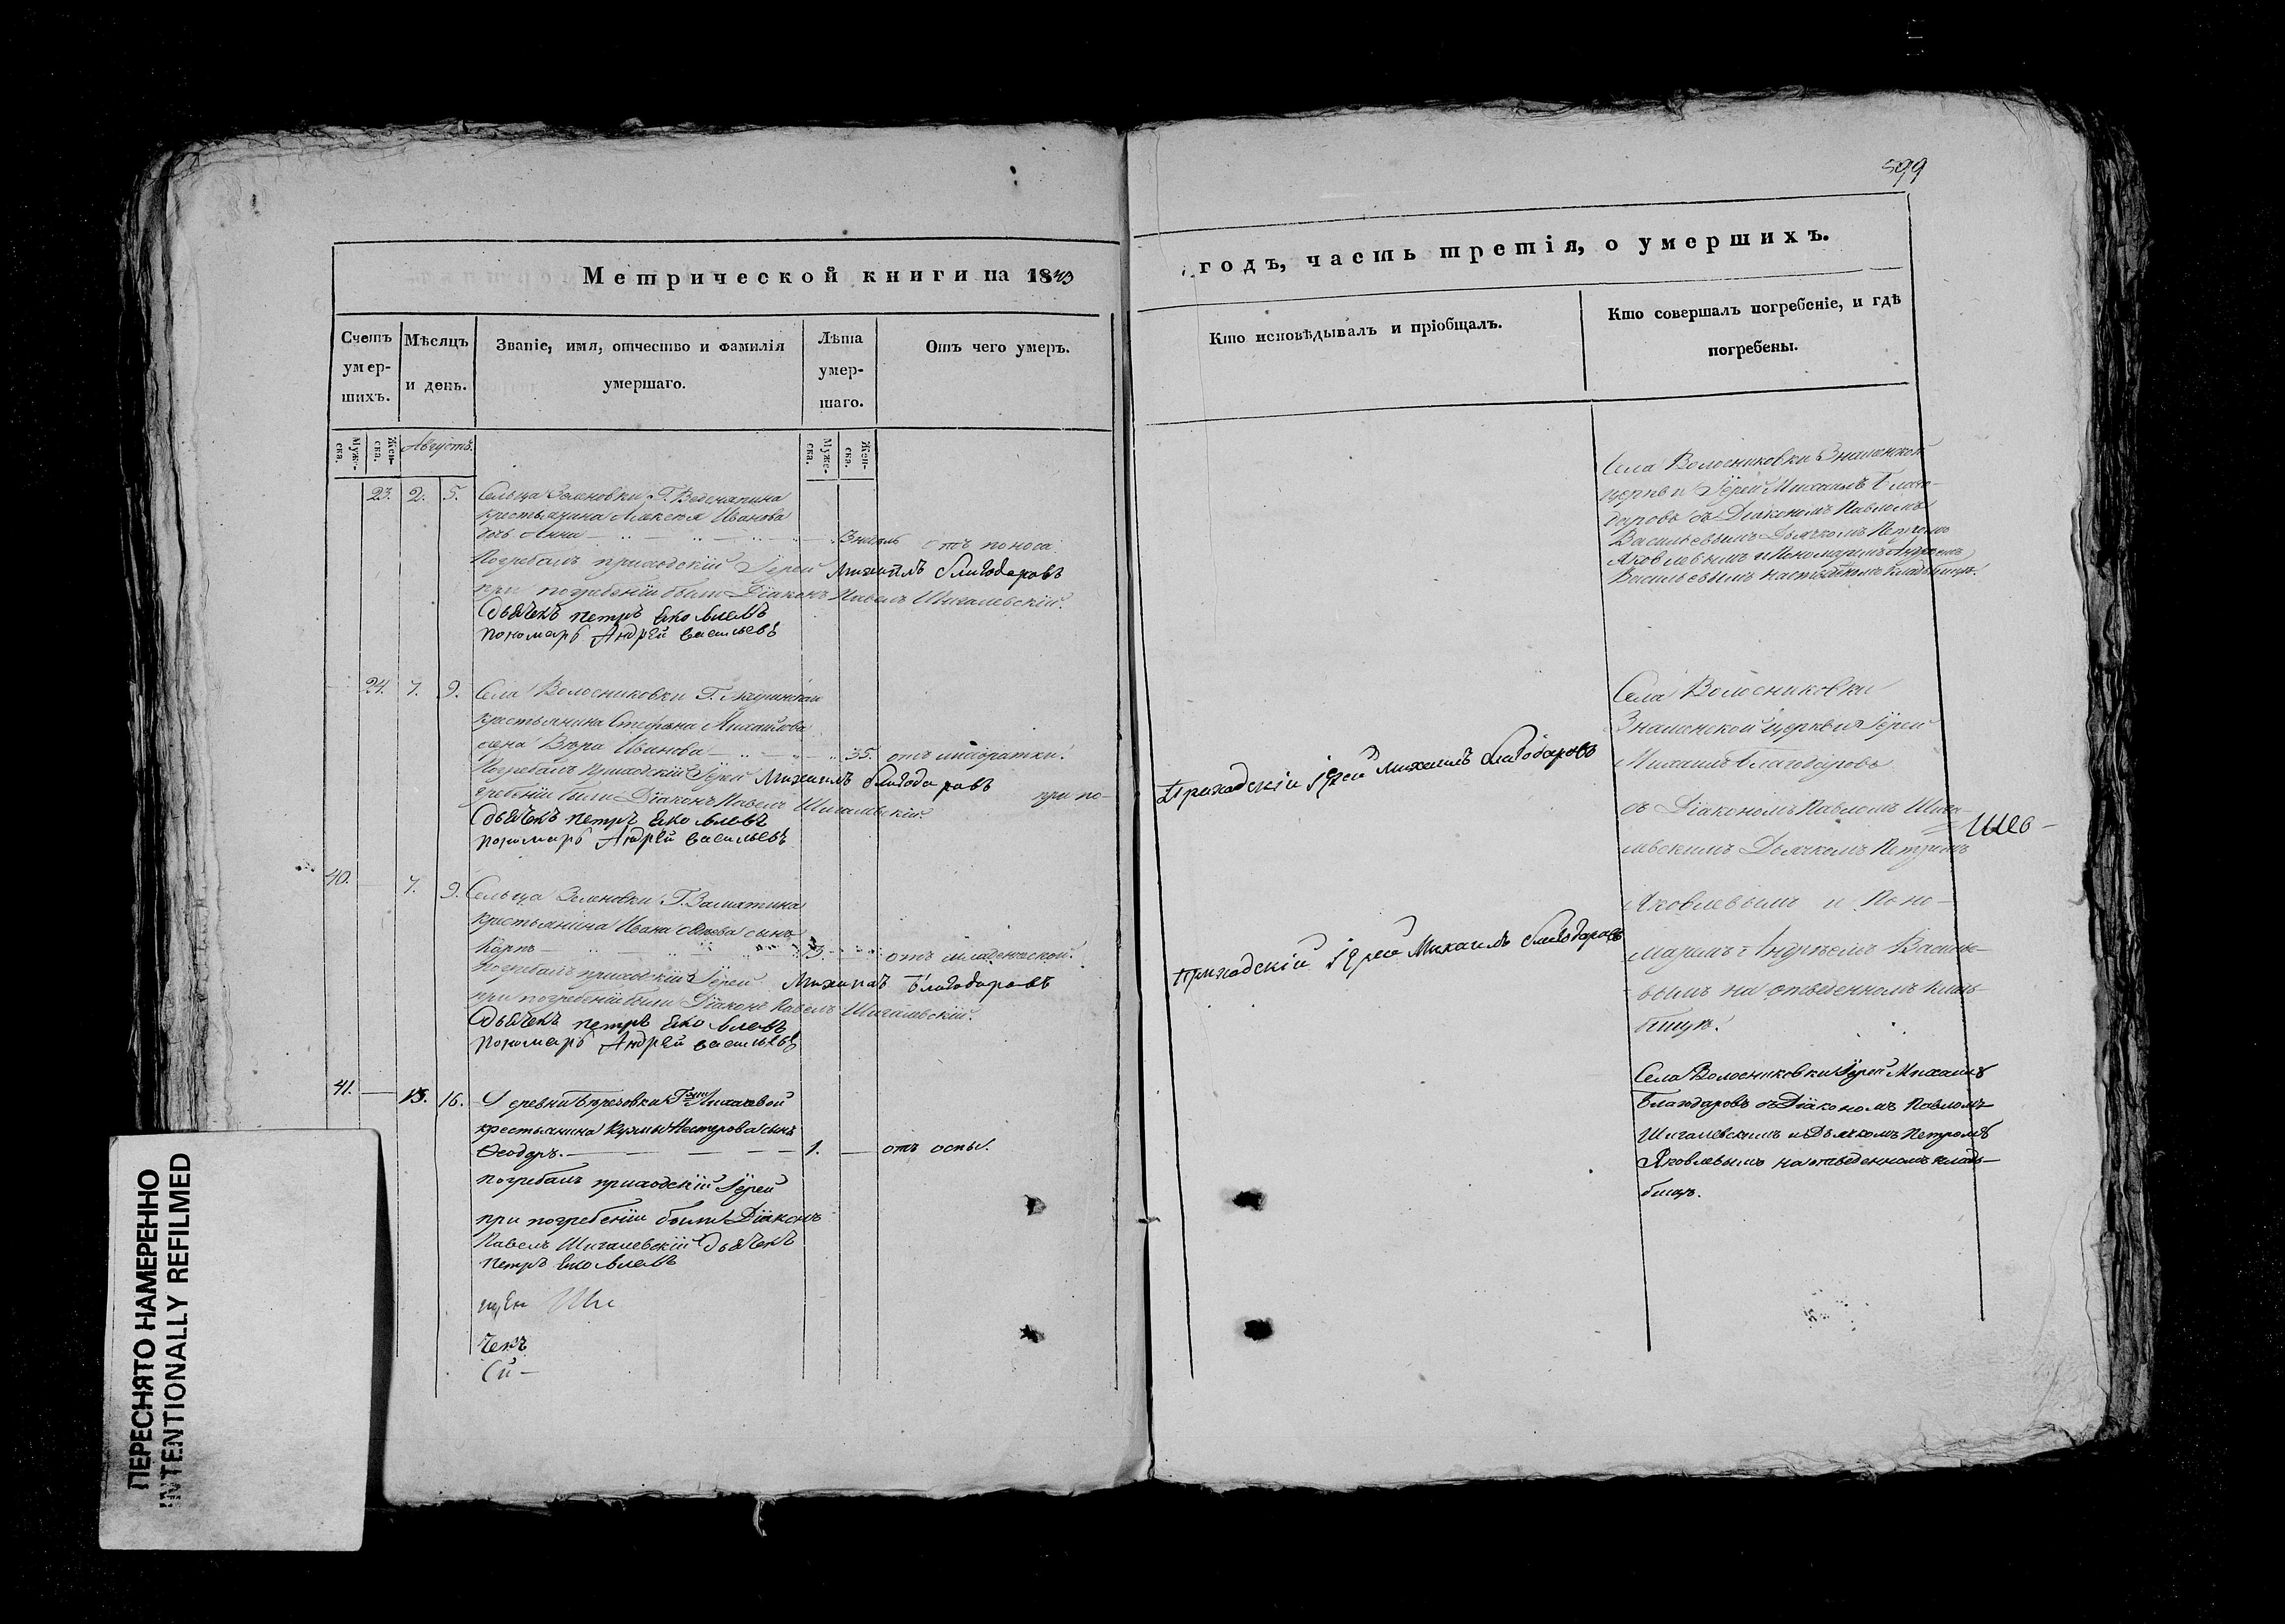 599
Метрической книги на 1843
годъ, часть третія, о умершихъ.
Счетъ умер-шихъ.
Мѣсяцъ и день.
Званіе, имя, отчество и фамилія умершаго.
Лѣта умер-шаго.
Отъ чего умеръ.
Кто исповѣдывалъ и пріобщалъ.
Кто совершалъ погребеніе, и гдѣ погребены.
Муже-ска.
Жен-ска.
Августъ.
Муже-ска.
Жен-ска.
23. 2. 5. Сельца Г. Веденяпина
крестьянина Алексея Иванова
дочь Анна 3 недѣль отъ поноса
Погребалъ приходскій Іерей Михаилъ Благодаровъ
при погребеніи были Діаконъ Павелъ Шигалевскій.
Дьячекъ Петръ Яковлевъ
Пономарь Андрей Васильевъ
Села Волосниковки Знаменской
церкви Іерей Михаилъ Благо-
даровъ съ Діакономъ Павломъ
Васильевымъ Дьячкомъ Петромъ
Яковлевымъ и Пономаремъ Андреемъ
Васильевымъ на кладбищѣ.
24. 7. 9. Села Волосниковки Г.
крестьянина Стефана Михайлова
жена Вѣра Иванова 35. отъ лихорадки.
Погребалъ Приходскій Іерей Михаилъ Благодаровъ при по-
гребеніи были Діаконъ Павелъ Шигалевскій.
Дьячекъ Петръ Яковлевъ
Пономарь Андрей Васильевъ
Приходскій Іерей Михаилъ Благодаровъ
Села Волосниковки
Знаменской церкви Іерей
Михаилъ Благодаровъ
съ Діакономъ Павломъ Шига-
левскимъ Дьячкомъ Петромъ
Яковлевымъ и Поно-
маремъ Андреемъ Василье-
вымъ на отведенномъ клад-
бищѣ.
40. 7. 9. Сельца Г. Замятина
крестьянина Ивана сынъ
Карпъ 3. отъ младенческой.
Погребалъ приходскій Іерей Михаилъ Благодаровъ
при погребеніи были Діаконъ Павелъ Шигалевскій.
Дьячекъ Петръ Яковлевъ
Пономарь Андрей Васильевъ
Приходскій Іерей Михаилъ Благодаровъ
41. 13. 16. Деревни Березовки Лихачевой
крестьянина Кузмы Нестерова сынъ
Ѳеодоръ. 1. отъ оспы.
Погребалъ приходскій Іерей
при погребеніи были Діаконъ
Павелъ Шигалевскій Дьячекъ
Петръ Яковлевъ
Села Волосниковки Іерей Михаилъ
Благодаровъ съ Діакономъ Павломъ
Шигалевскимъ и Дьячкомъ Петромъ
Яковлевымъ на отведенномъ клад-
бищѣ.
чекъ
ПЕРЕСНЯТО НАМЕРЕННО
INTENTIONALLY REFILMED